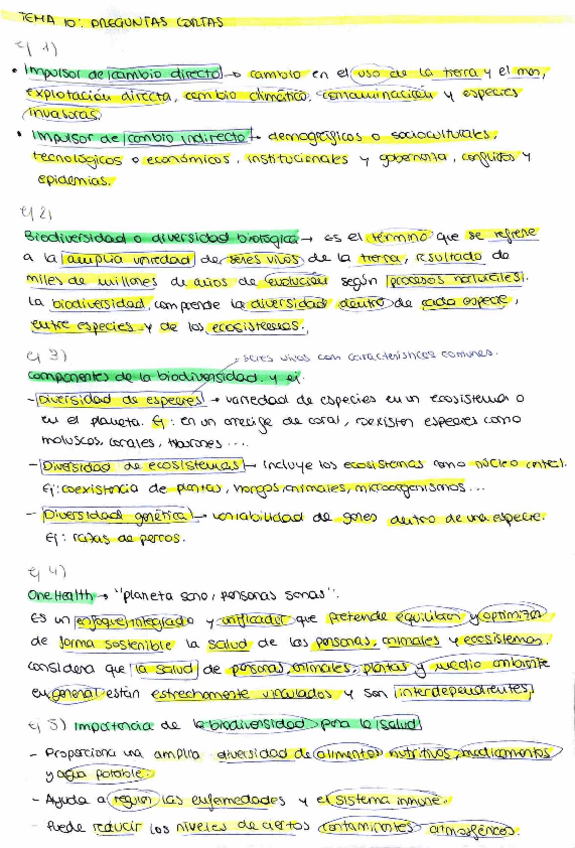 TEMA 10: PREGUNTAS CORTAS
Ej 1)
• Impulsor de cambio directo → cambio en el uso de la tierra y el mar,
explotación directa, cambio climático, contaminación y especies
invasoras.
• Impulsor de cambio indirecto → demográficos o socioculturales,
tecnológicos o económicos, institucionales y gobernanza, conflictos y
epidemias.
Ej 2)
Biodiversidad o diversidad biológica → es el término que se refiere
a la amplia variedad de seres vivos de la tierra, resultado de
miles de millones de años de evolución según procesos naturales.
La biodiversidad, comprende la diversidad dentro de cada especie,
entre especies y de los ecosistemas.
Ej 3)
seres vivos con características comunes.
componentes de la biodiversidad y ej.
- Diversidad de especies → variedad de especies en un ecosistema o
en el planeta. Ej: en un arrecife de coral, coexisten especies como
moluscos, corales, tiburones ....
- Diversidad de ecosistemas → incluye los ecosistemas como núcleo central.
Ej: coexistencia de plantas, hongos, animales, microorganismos ...
- Diversidad genética → variabilidad de genes dentro de una especie.
Ej: razas de perros.
Ej 4)
One Health → "planeta sano, personas sanas".
Es un enfoque integrado y unificador que pretende equilibrar y optimizar
de forma sostenible la salud de las personas, animales y ecosistemas.
considera que la salud de personas, animales, plantas y medio ambiente
en general están estrechamente vinculados y son interdependientes
Ej 5) Importancia de la biodiversidad para la salud
- Proporciona una amplia diversidad de alimentos nutritivos, medicamentos
y agua potable.
- Ayuda a regular las enfermedades y el sistema inmune.
- Puede reducir los niveles de ciertos contaminantes atmosféricos.